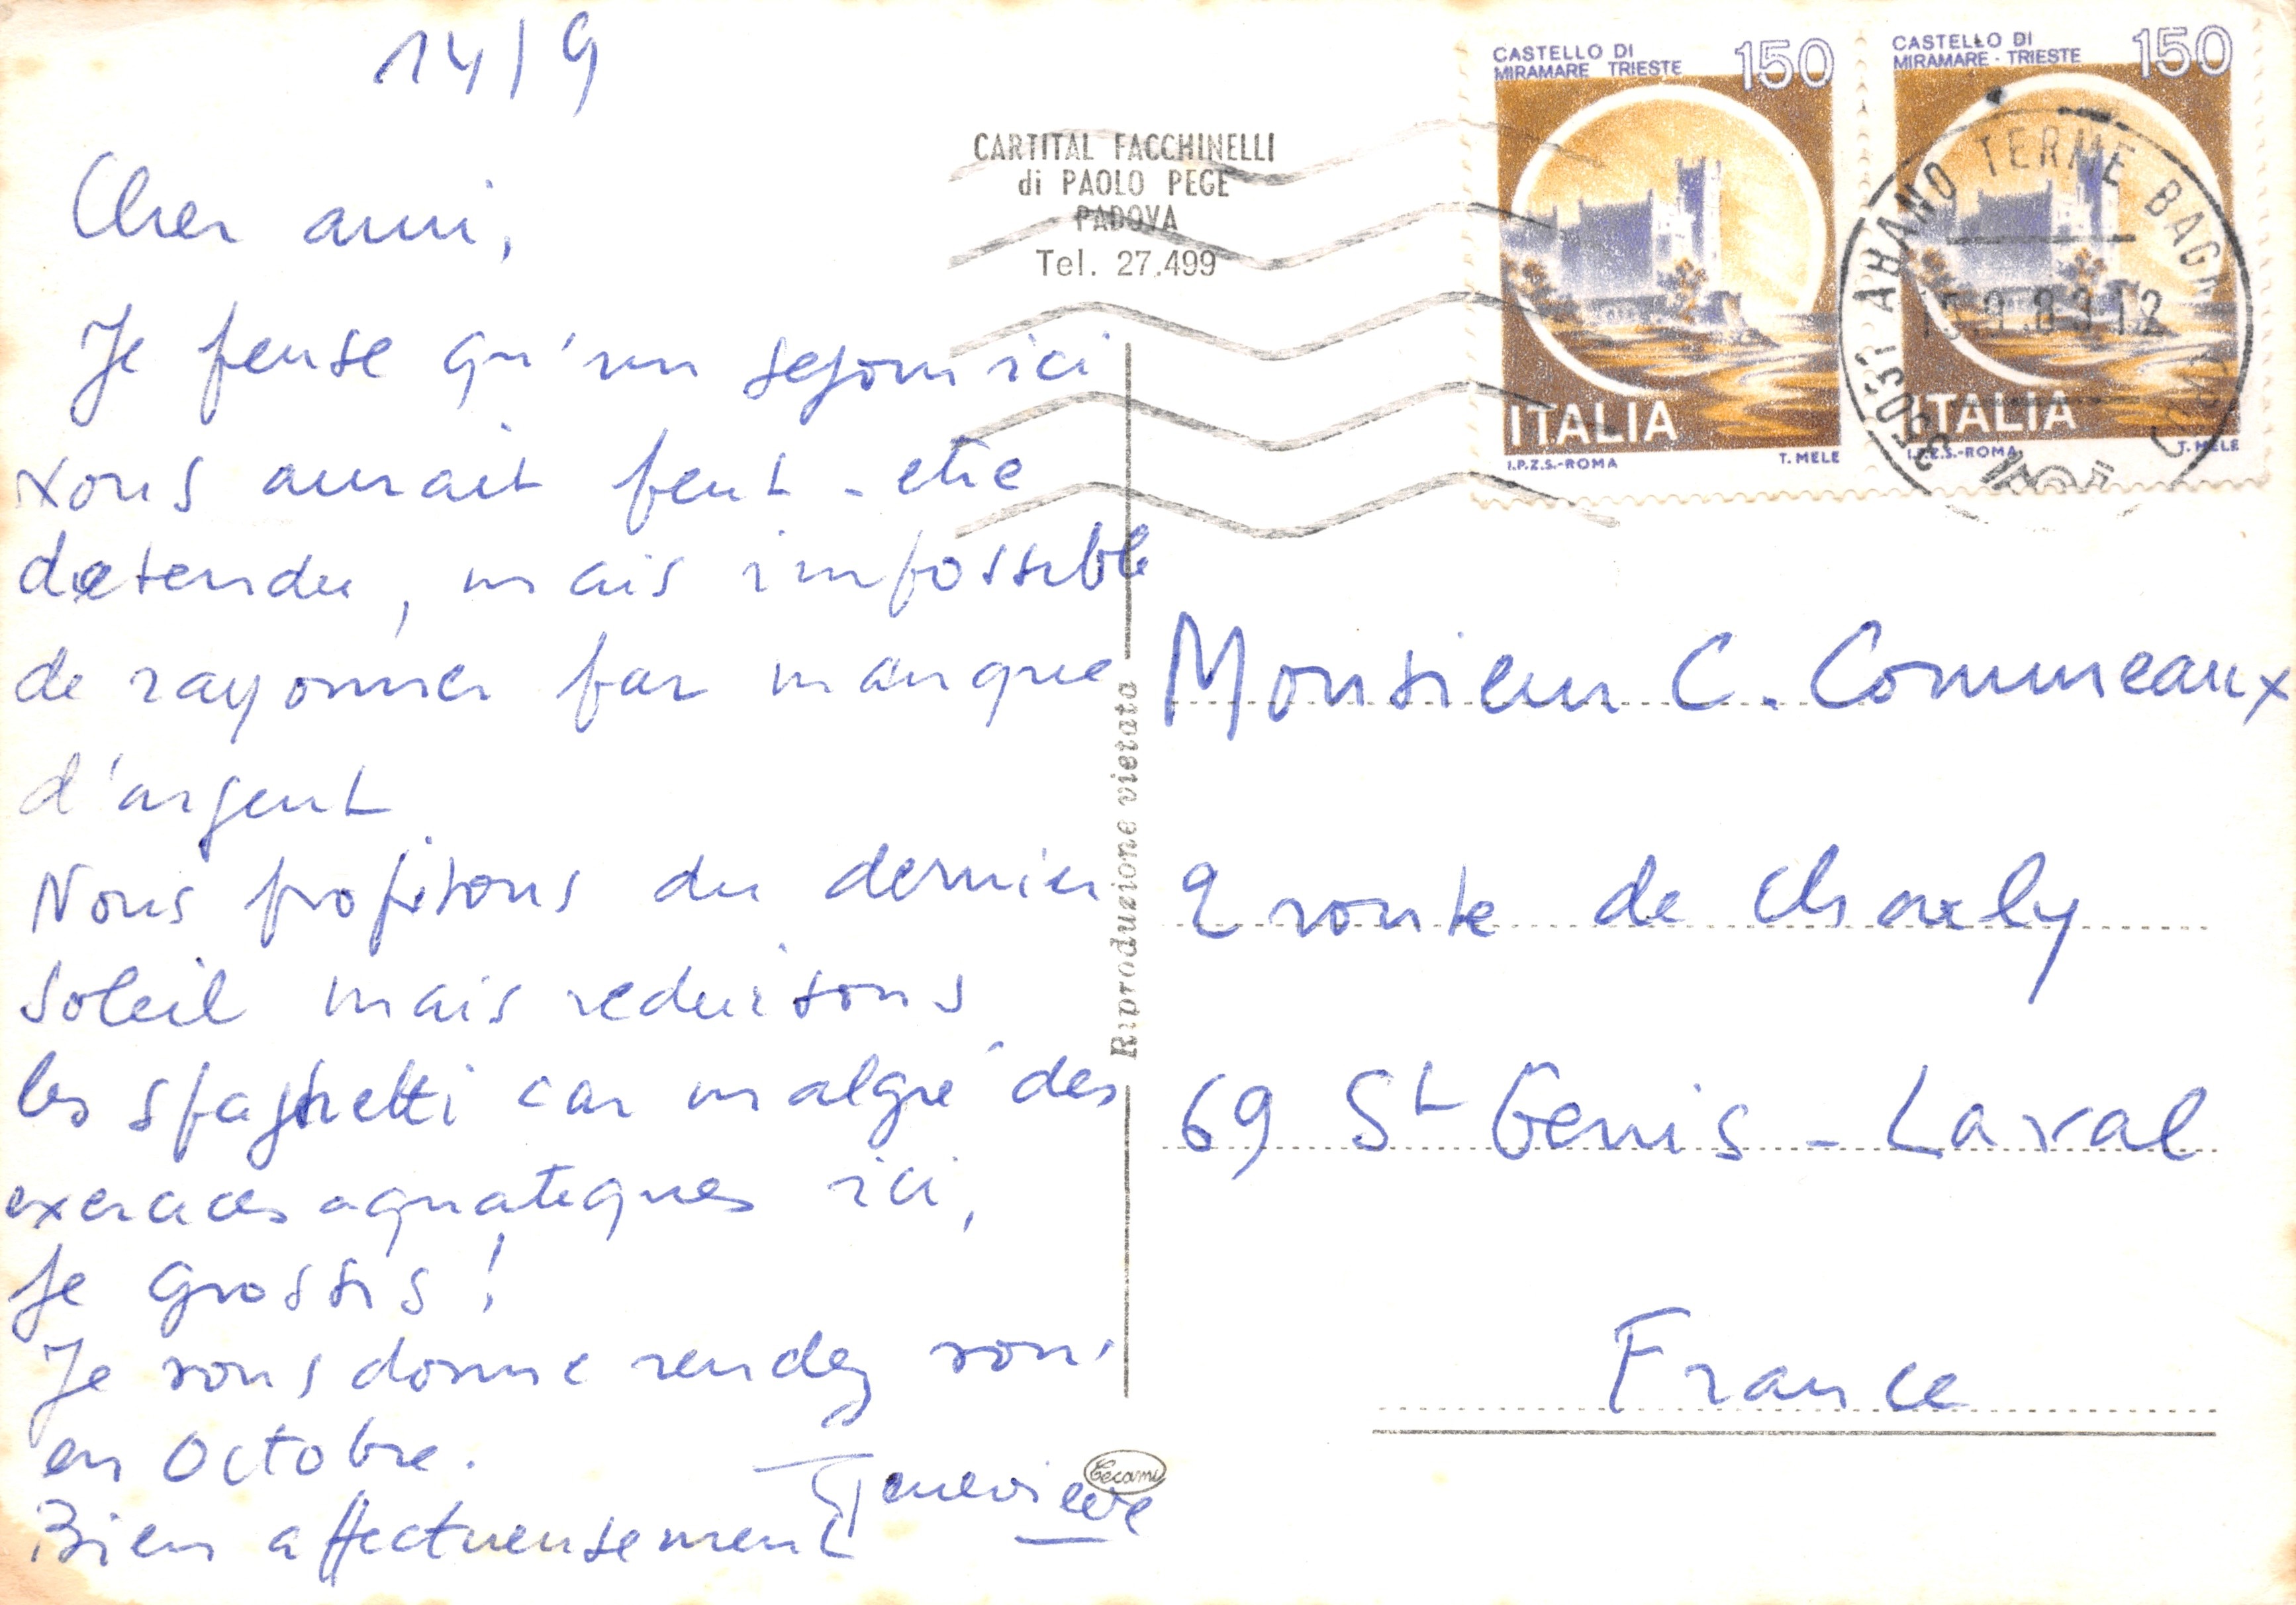 14/9
Cher ami,
Je pense qu'un sejour ici
vous aurait peut-etre
detendu, mais impossible
de rayonner par manque
d'argent
Nous profitons du dernier
soleil mais reduisons
les spaghetti car malgré des
exercices aquatiques ici,
je grossis !
Je vous donne rendez vous
en Octobre.
Bien affectueusement
Genevieve
CARTITAL FACCHINELLI
di PAOLO PEGE
PADOVA
Tel. 27.499
Riproduzione vietata
Tecami
CASTELLO DI
MIRAMARE TRIESTE
150
ITALIA
I.P.Z.S.-ROMA T. MELE
CASTELLO DI
MIRAMARE - TRIESTE
150
ITALIA
I.P.Z.S.-ROMA T. MELE
35031 ABANO TERME BAGNI
15.9.83 12
Monsieur C. Commeaux
2 route de Charly
69 St Genis - Laval
France